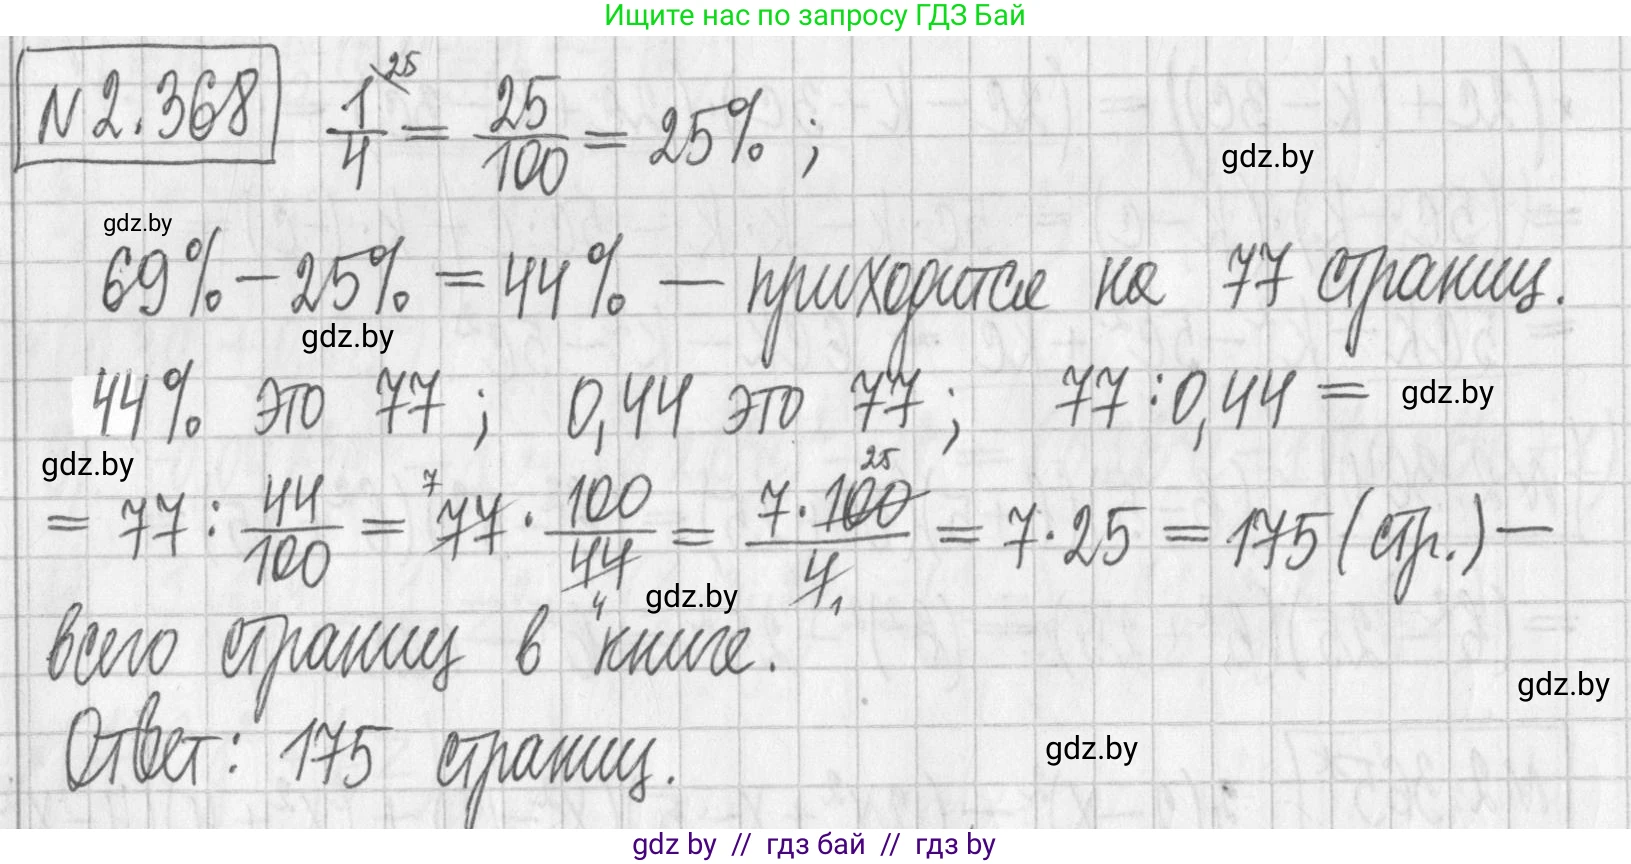 Ищите нас по запросу ГДЗ Бай
N 2.368 1/4 ²⁵ = 25/100 = 25% ;
gdz.by
gdz.by
69% - 25% = 44% — приходится на 77 страниц.
gdz.by
44% это 77 ; 0,44 это 77 ; 77 : 0,44 = gdz.by
gdz.by
= 77 : 44/100 = 77 ⁷ · 100/44 ₄ = 7 · 100 ²⁵/4 ₁ = 7 · 25 = 175 (стр.) —
gdz.by
всего страниц в книге.
gdz.by
Ответ: 175 страниц.
gdz.by
gdz by // гдз бай // гдз by